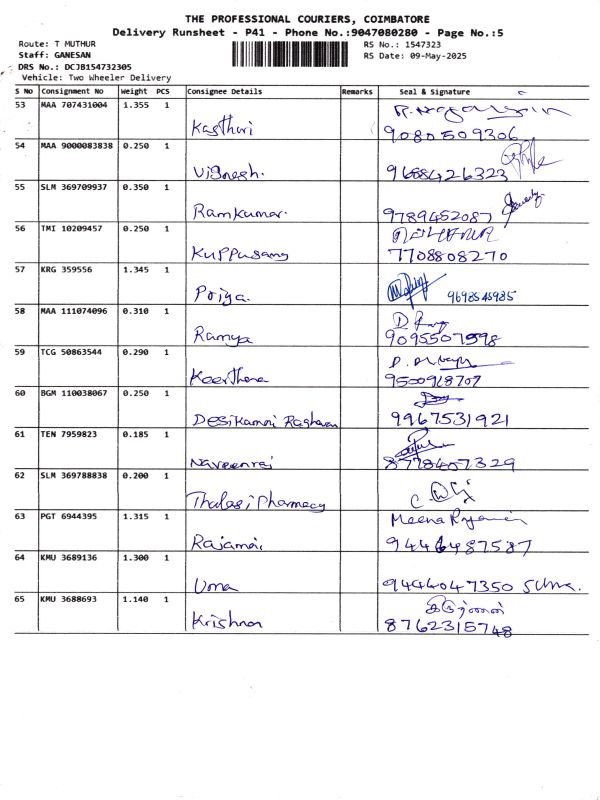 THE PROFESSIONAL COURIERS, COIMBATORE
Delivery Runsheet - P41 - Phone No.:9047080280 - Page No.:5
Route: T MUTHUR
RS No.: 1547323
Staff: GANESAN
RS Date: 09-May-2025
DRS No.: DCJB154732305
Vehicle: Two Wheeler Delivery
S No Consignment No Weight PCS Consignee Details Remarks Seal & Signature
53 MAA 707431004 1.355 1
Kasthuri 9080509306
54 MAA 9000083838 0.250 1
Vignesh. 9688426323
55 SLM 369709937 0.350 1
Ramkumar. 9789452087
56 TMI 10209457 0.250 1
Kuppusamy 7708808270
57 KRG 359556 1.345 1
Priya.
58 MAA 111074096 0.310 1
Ramya 9095507598
59 TCG 50863544 0.290 1
Keerthana
60 BGM 110038067 0.250 1
Desikamani Raghavan 9967531921
61 TEN 7959823 0.185 1
Naveenraj 8778407329
62 SLM 369788838 0.200 1
Thulasi Pharmacy
63 PGT 6944395 1.315 1
Meena
Rajamani 9446487587
64 KMU 3689136 1.300 1
Uma 9444047350
65 KMU 3688693 1.140 1
Krishna 8762315748